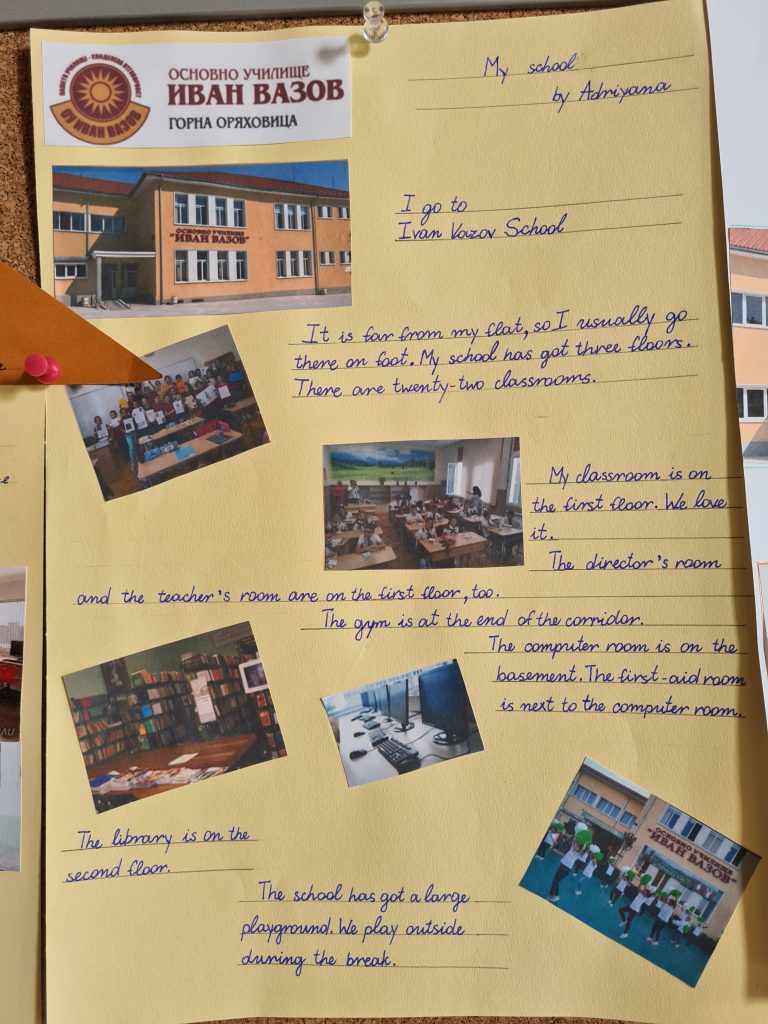 ОСНОВНО УЧИЛИЩЕ
ИВАН ВАЗОВ
ГОРНА ОРЯХОВИЦА
ОУ ИВАН ВАЗОВ
My school
by Adriyana
ОСНОВНО УЧИЛИЩЕ
"ИВАН ВАЗОВ"
I go to
Ivan Vazov School
It is far from my flat, so I usually go
there on foot. My school has got three floors.
There are twenty-two classrooms.
My classroom is on
the first floor. We love
it.
The director's room
and the teacher's room are on the first floor, too.
The gym is at the end of the corridor.
The computer room is on the
basement. The first-aid room
is next to the computer room.
The library is on the
second floor.
ОСНОВНО УЧИЛИЩЕ
"ИВАН ВАЗОВ"
The school has got a large
playground. We play outside
during the break.